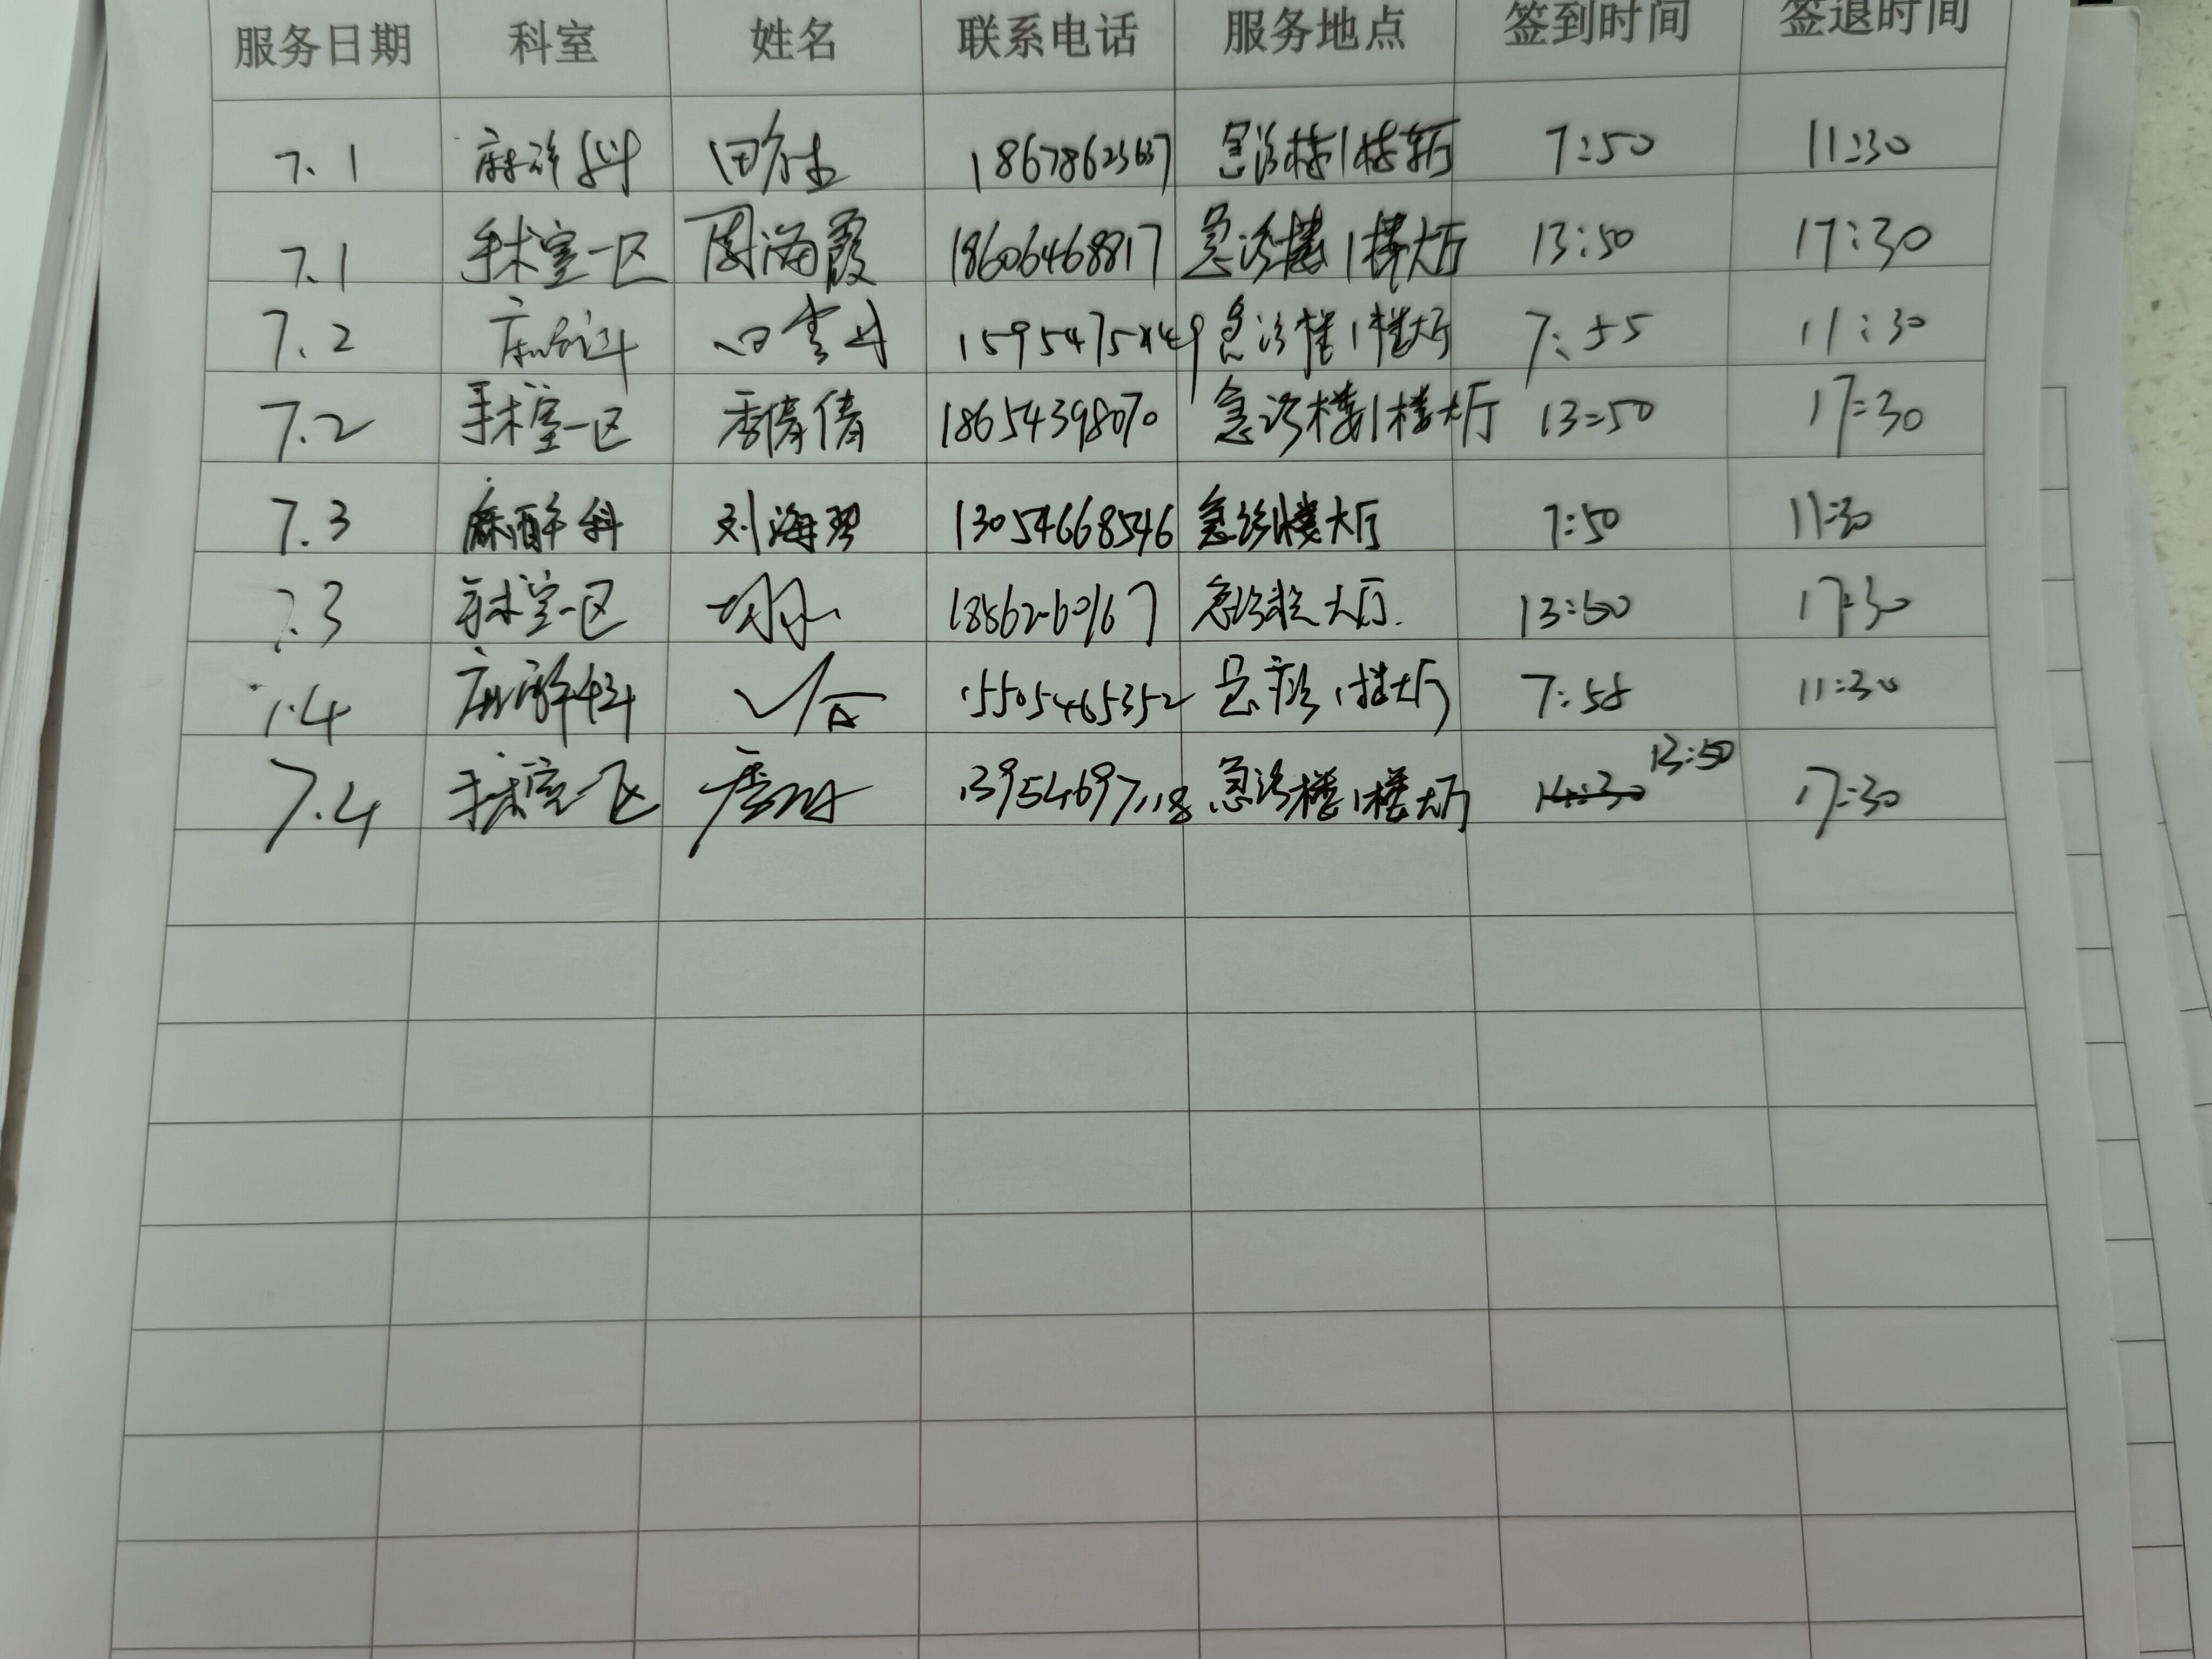 服务日期 科室 姓名 联系电话 服务地点 签到时间 签退时间
7.1 麻醉科 18678623637 急诊楼1楼大厅 7:50 11:30
7.1 手术室一区 周海霞 18606468817 急诊楼1楼大厅 13:50 17:30
7.2 麻醉科 急诊楼1楼大厅 7:55 11:30
7.2 手术室一区 季倩倩 18654398070 急诊楼1楼大厅 13:50 17:30
7.3 麻醉科 刘海琴 13054668546 急诊楼大厅 7:50 11:30
7.3 手术室一区 急诊楼大厅. 13:50 17:30
7.4 麻醉科 15505465352 急诊1楼大厅 7:58 11:30
7.4 手术室一区 急诊楼1楼大厅 14:30 13:50 17:30